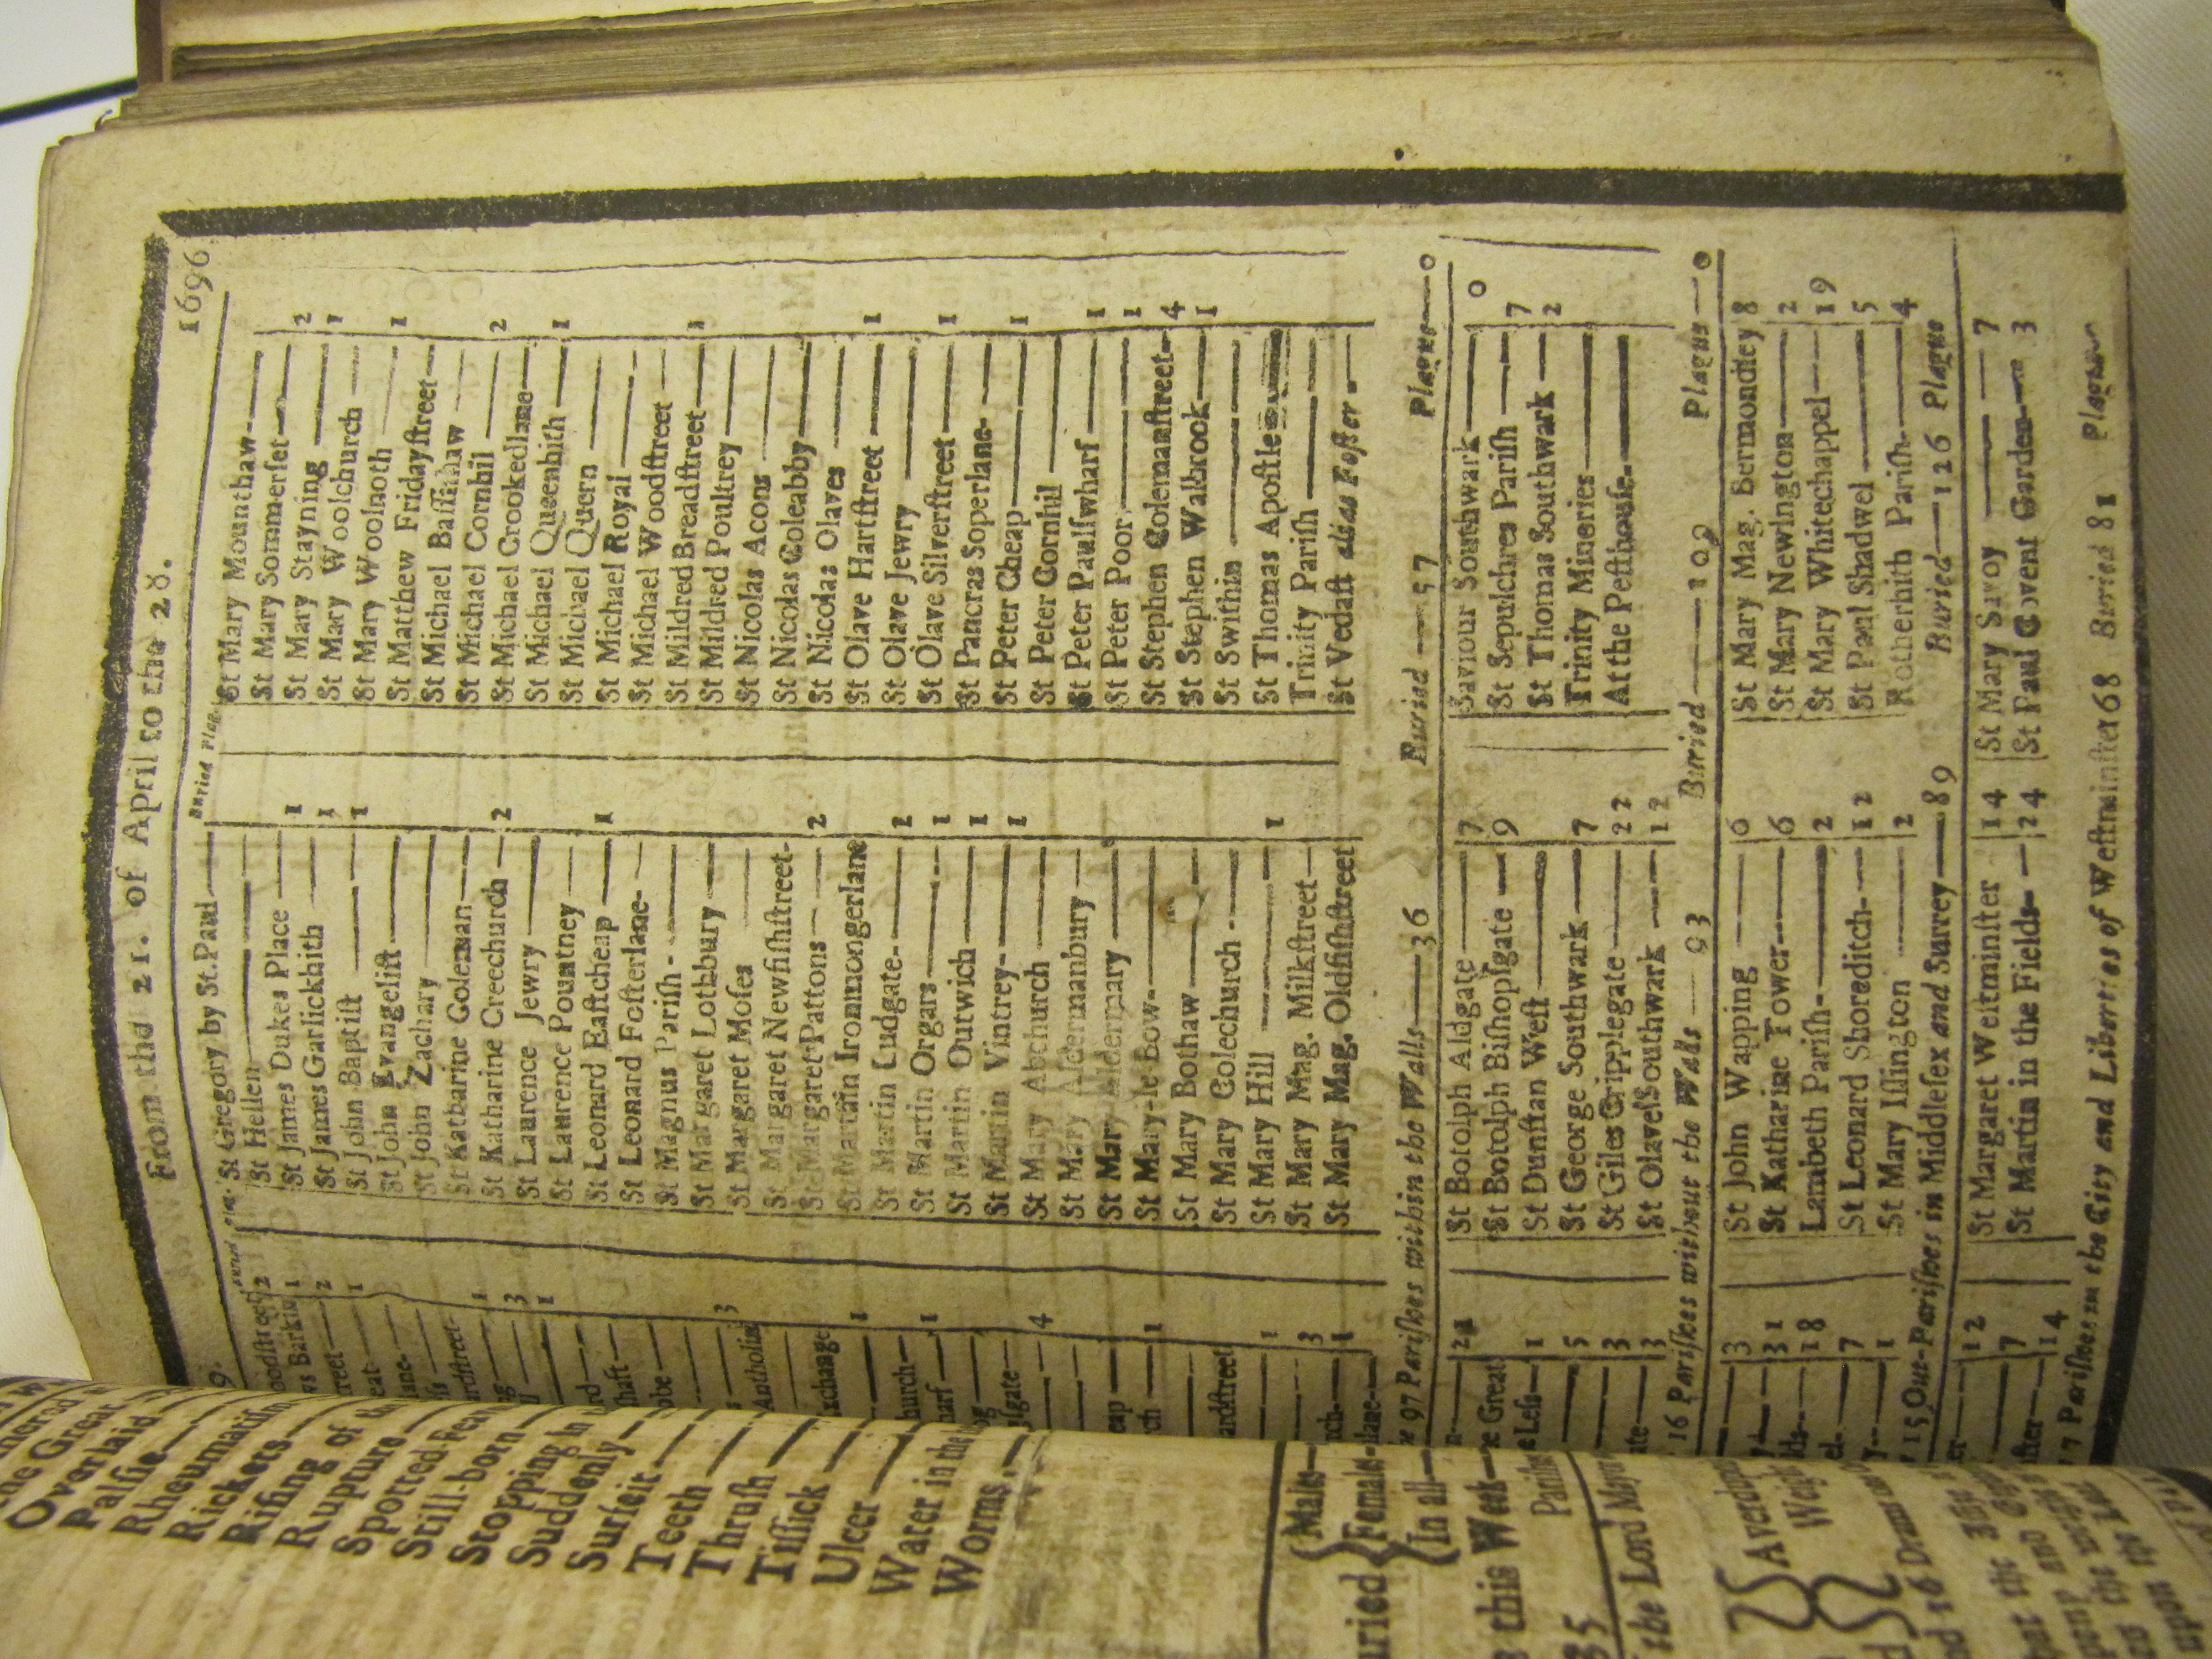 From the 21. of April to the 28. 1696
9.
Buried Plag.
oodstreet 2
ws Barkin 1
treet 2
eat 1
lane
rdstreet 1
g 3
1
rd
shaft
obe
3
Antholin
xchange 1
hurch
harf 1
gate
4
eap
ch 1
ardstreet
1
3
ch
lane 1
St Gregory by St. Paul
St Hellen
St James Dukes Place 1
St James Garlickhith 1
St John Baptist 1
St John Evangelist
St John Zachary
St Katharine Coleman
St Katharine Creechurch 2
St Laurence Jewry
St Laurence Pountney
St Leonard Eastcheap 1
St Leonard Fosterlane
St Magnus Parish
St Margaret Lothbury
St Margaret Moses
St Margaret Newfishstreet
St Margaret Pattons 2
St Martin Ironmongerlane
St Martin Ludgate 1
St Martin Orgars 1
St Martin Outwich 1
St Martin Vintrey 1
St Mary Abchurch
St Mary Aldermanbury
St Mary Aldermary
St Mary-le-Bow
St Mary Bothaw
St Mary Colechurch
St Mary Hill 1
St Mary Mag. Milkstreet
St Mary Mag. Oldfishstreet
Buried Plag.
St Mary Mounthaw
St Mary Sommerset 2
St Mary Stayning 1
St Mary Woolchurch
St Mary Woolnoth 1
St Matthew Fridaystreet
St Michael Bassishaw
St Michael Cornhil 2
St Michael Crookedlane
St Michael Queenhith 1
St Michael Quern
St Michael Royal
St Michael Woodstreet
St Mildred Breadstreet 1
St Mildred Poultrey
St Nicolas Acons
St Nicolas Coleabby
St Nicolas Olaves
St Olave Hartstreet 1
St Olave Jewry
St Olave Silverstreet 1
St Pancras Soperlane
St Peter Cheap 1
St Peter Cornhil
St Peter Paulswharf 1
St Peter Poor 1
St Stephen Colemanstreet 4
St Stephen Walbrook 1
St Swithin
St Thomas Apostle
Trinity Parish
St Vedast alias Foster
97 Parishes within the Walls 36 Buried 57 Plague 0
21
e Great
e Less 1
5
3
te 3
St Botolph Aldgate 7
St Botolph Bishopsgate 9
St Dunstan West
St George Southwark 7
St Giles Cripplegate 22
St Olaves Southwark 12
Saviour Southwark 0
St Sepulchres Parish 7
St Thomas Southwark 2
Trinity Minories
At the Pesthouse
16 Parishes without the Walls 93 Buried 102 Plague 0
3
31
lds 18
el 7
y 1
St John Wapping 6
St Katharine Tower 6
Lambeth Parish 2
St Leonard Shoreditch 12
St Mary Islington 2
St Mary Mag. Bermondsey 8
St Mary Newington 2
St Mary Whitechappel 19
St Paul Shadwel 5
Rotherhith Parish 4
15 Out-Parishes in Middlesex and Surrey 89 Buried 126 Plague
12
7
14
St Margaret Westminster 14
St Martin in the Fields 24
St Mary Savoy 7
St Paul Covent Garden 3
7 Parishes in the City and Liberties of Westminster 68 Buried 81 Plague
the Great
Overlaid
Palsie
Rheumatism
Rickets
Rising of the
Rupture
Spotted-Fever
Still-born
Stopping in
Suddenly
Surfeit
Teeth
Thrush
Tissick
Ulcer
Water in the
Worms
uried { Males
Females
In all
this Week
35
the Lord Mayor
Averdupois
Weight
16 Drams